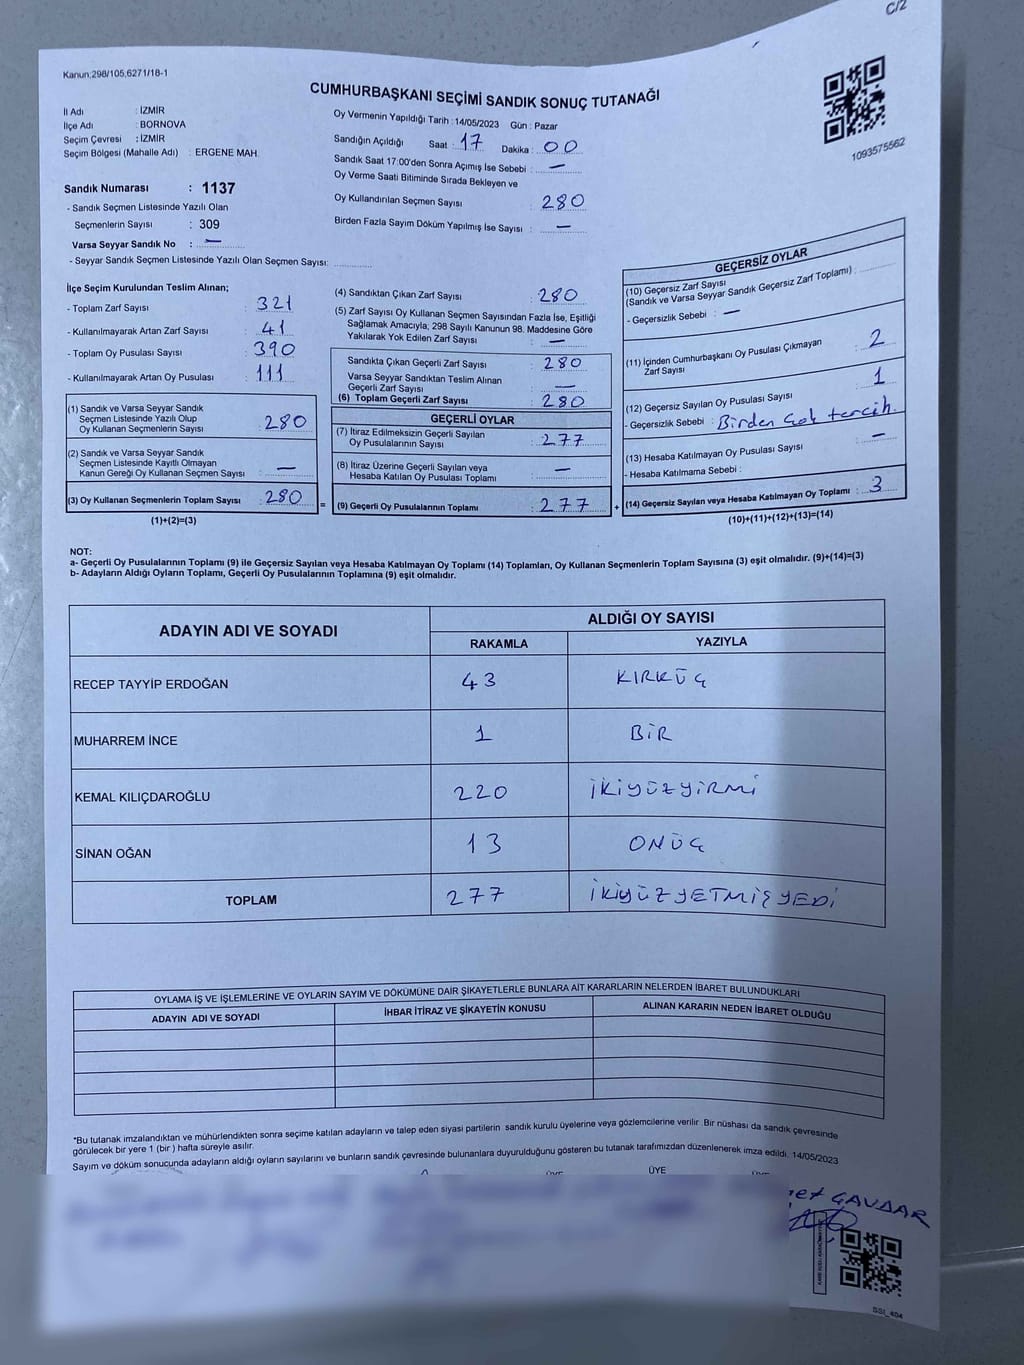 C/2
Kanun;298/105,6271/18-1
CUMHURBAŞKANI SEÇİMİ SANDIK SONUÇ TUTANAĞI
1093575562
İl Adı : İZMİR
İlçe Adı : BORNOVA
Seçim Çevresi : İZMİR
Seçim Bölgesi (Mahalle Adı) : ERGENE MAH.
Sandık Numarası : 1137
- Sandık Seçmen Listesinde Yazılı Olan
Seçmenlerin Sayısı : 309
Varsa Seyyar Sandık No : —
- Seyyar Sandık Seçmen Listesinde Yazılı Olan Seçmen Sayısı:
Oy Vermenin Yapıldığı Tarih : 14/05/2023 Gün : Pazar
Sandığın Açıldığı Saat : 17 Dakika : 00
Sandık Saat 17:00'den Sonra Açımış İse Sebebi : —
Oy Verme Saati Bitiminde Sırada Bekleyen ve
Oy Kullandırılan Seçmen Sayısı : 280
Birden Fazla Sayım Döküm Yapılmış İse Sayısı : —
İlçe Seçim Kurulundan Teslim Alınan;
- Toplam Zarf Sayısı : 321
- Kullanılmayarak Artan Zarf Sayısı : 41
- Toplam Oy Pusulası Sayısı : 390
- Kullanılmayarak Artan Oy Pusulası : 111
(1) Sandık ve Varsa Seyyar Sandık
Seçmen Listesinde Yazılı Olup
Oy Kullanan Seçmenlerin Sayısı : 280
(2) Sandık ve Varsa Seyyar Sandık
Seçmen Listesinde Kayıtlı Olmayan
Kanun Gereği Oy Kullanan Seçmen Sayısı : —
(3) Oy Kullanan Seçmenlerin Toplam Sayısı : 280 =
(1)+(2)=(3)
(4) Sandıktan Çıkan Zarf Sayısı : 280
(5) Zarf Sayısı Oy Kullanan Seçmen Sayısından Fazla İse, Eşitliği
Sağlamak Amacıyla; 298 Sayılı Kanunun 98. Maddesine Göre
Yakılarak Yok Edilen Zarf Sayısı : —
Sandıkta Çıkan Geçerli Zarf Sayısı : 280
Varsa Seyyar Sandıktan Teslim Alınan
Geçerli Zarf Sayısı : —
(6) Toplam Geçerli Zarf Sayısı : 280
GEÇERLİ OYLAR
(7) İtiraz Edilmeksizin Geçerli Sayılan
Oy Pusulalarının Sayısı : 277
(8) İtiraz Üzerine Geçerli Sayılan veya
Hesaba Katılan Oy Pusulası Toplamı : —
(9) Geçerli Oy Pusulalarının Toplamı : 277 +
GEÇERSİZ OYLAR
(10) Geçersiz Zarf Sayısı
(Sandık ve Varsa Seyyar Sandık Geçersiz Zarf Toplamı) :
- Geçersizlik Sebebi : —
(11) İçinden Cumhurbaşkanı Oy Pusulası Çıkmayan
Zarf Sayısı : 2
(12) Geçersiz Sayılan Oy Pusulası Sayısı : 1
- Geçersizlik Sebebi : Birden çok tercih.
(13) Hesaba Katılmayan Oy Pusulası Sayısı : —
- Hesaba Katılmama Sebebi :
(14) Geçersiz Sayılan veya Hesaba Katılmayan Oy Toplamı : 3
(10)+(11)+(12)+(13)=(14)
NOT:
a- Geçerli Oy Pusulalarının Toplamı (9) ile Geçersiz Sayılan veya Hesaba Katılmayan Oy Toplamı (14) Toplamları, Oy Kullanan Seçmenlerin Toplam Sayısına (3) eşit olmalıdır. (9)+(14)=(3)
b- Adayların Aldığı Oyların Toplamı, Geçerli Oy Pusulalarının Toplamına (9) eşit olmalıdır.
ADAYIN ADI VE SOYADI ALDIĞI OY SAYISI
RAKAMLA YAZIYLA
RECEP TAYYİP ERDOĞAN 43 KIRKÜÇ
MUHARREM İNCE 1 BİR
KEMAL KILIÇDAROĞLU 220 İKİYÜZYİRMİ
SİNAN OĞAN 13 ONÜÇ
TOPLAM 277 İKİYÜZYETMİŞYEDİ
OYLAMA İŞ VE İŞLEMLERİNE VE OYLARIN SAYIM VE DÖKÜMÜNE DAİR ŞİKAYETLERLE BUNLARA AİT KARARLARIN NELERDEN İBARET BULUNDUKLARI
ADAYIN ADI VE SOYADI İHBAR İTİRAZ VE ŞİKAYETİN KONUSU ALINAN KARARIN NEDEN İBARET OLDUĞU
*Bu tutanak imzalandıktan ve mühürlendikten sonra seçime katılan adayların ve talep eden siyasi partilerin sandık kurulu üyelerine veya gözlemcilerine verilir. Bir nüshası da sandık çevresinde
görülecek bir yere 1 (bir) hafta süreyle asılır.
Sayım ve döküm sonucunda adayların aldığı oyların sayılarını ve bunların sandık çevresinde bulunanlara duyurulduğunu gösteren bu tutanak tarafımızdan düzenlenerek imza edildi. 14/05/2023
ÜYE
ÇAVDAR
SSI_404